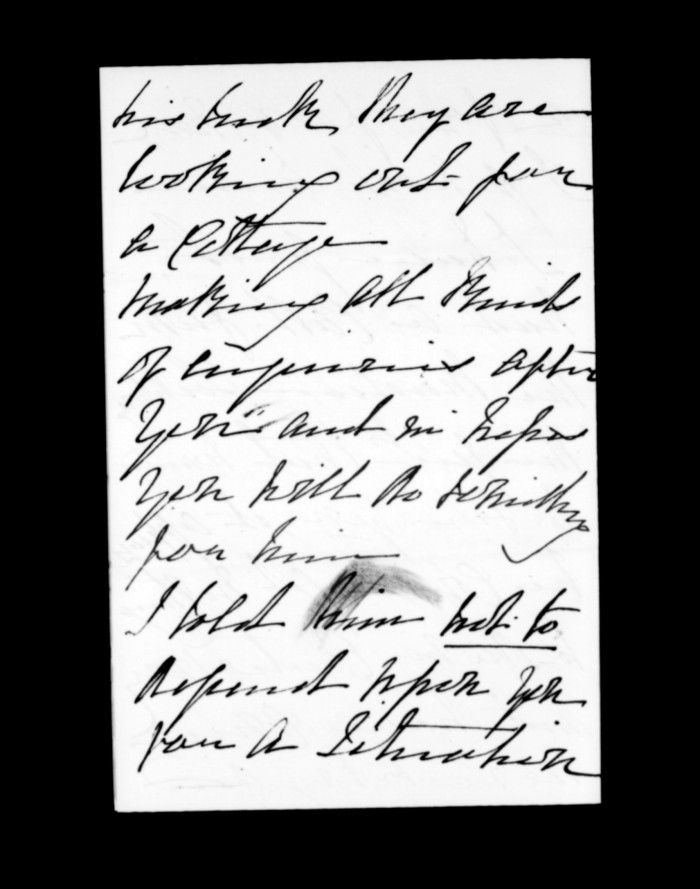 his week, they are
looking out for
a Cottage
making all kinds
of enquiries after
you and in hopes
you will do something
for him
I told him not to
depend upon you
for a Situation